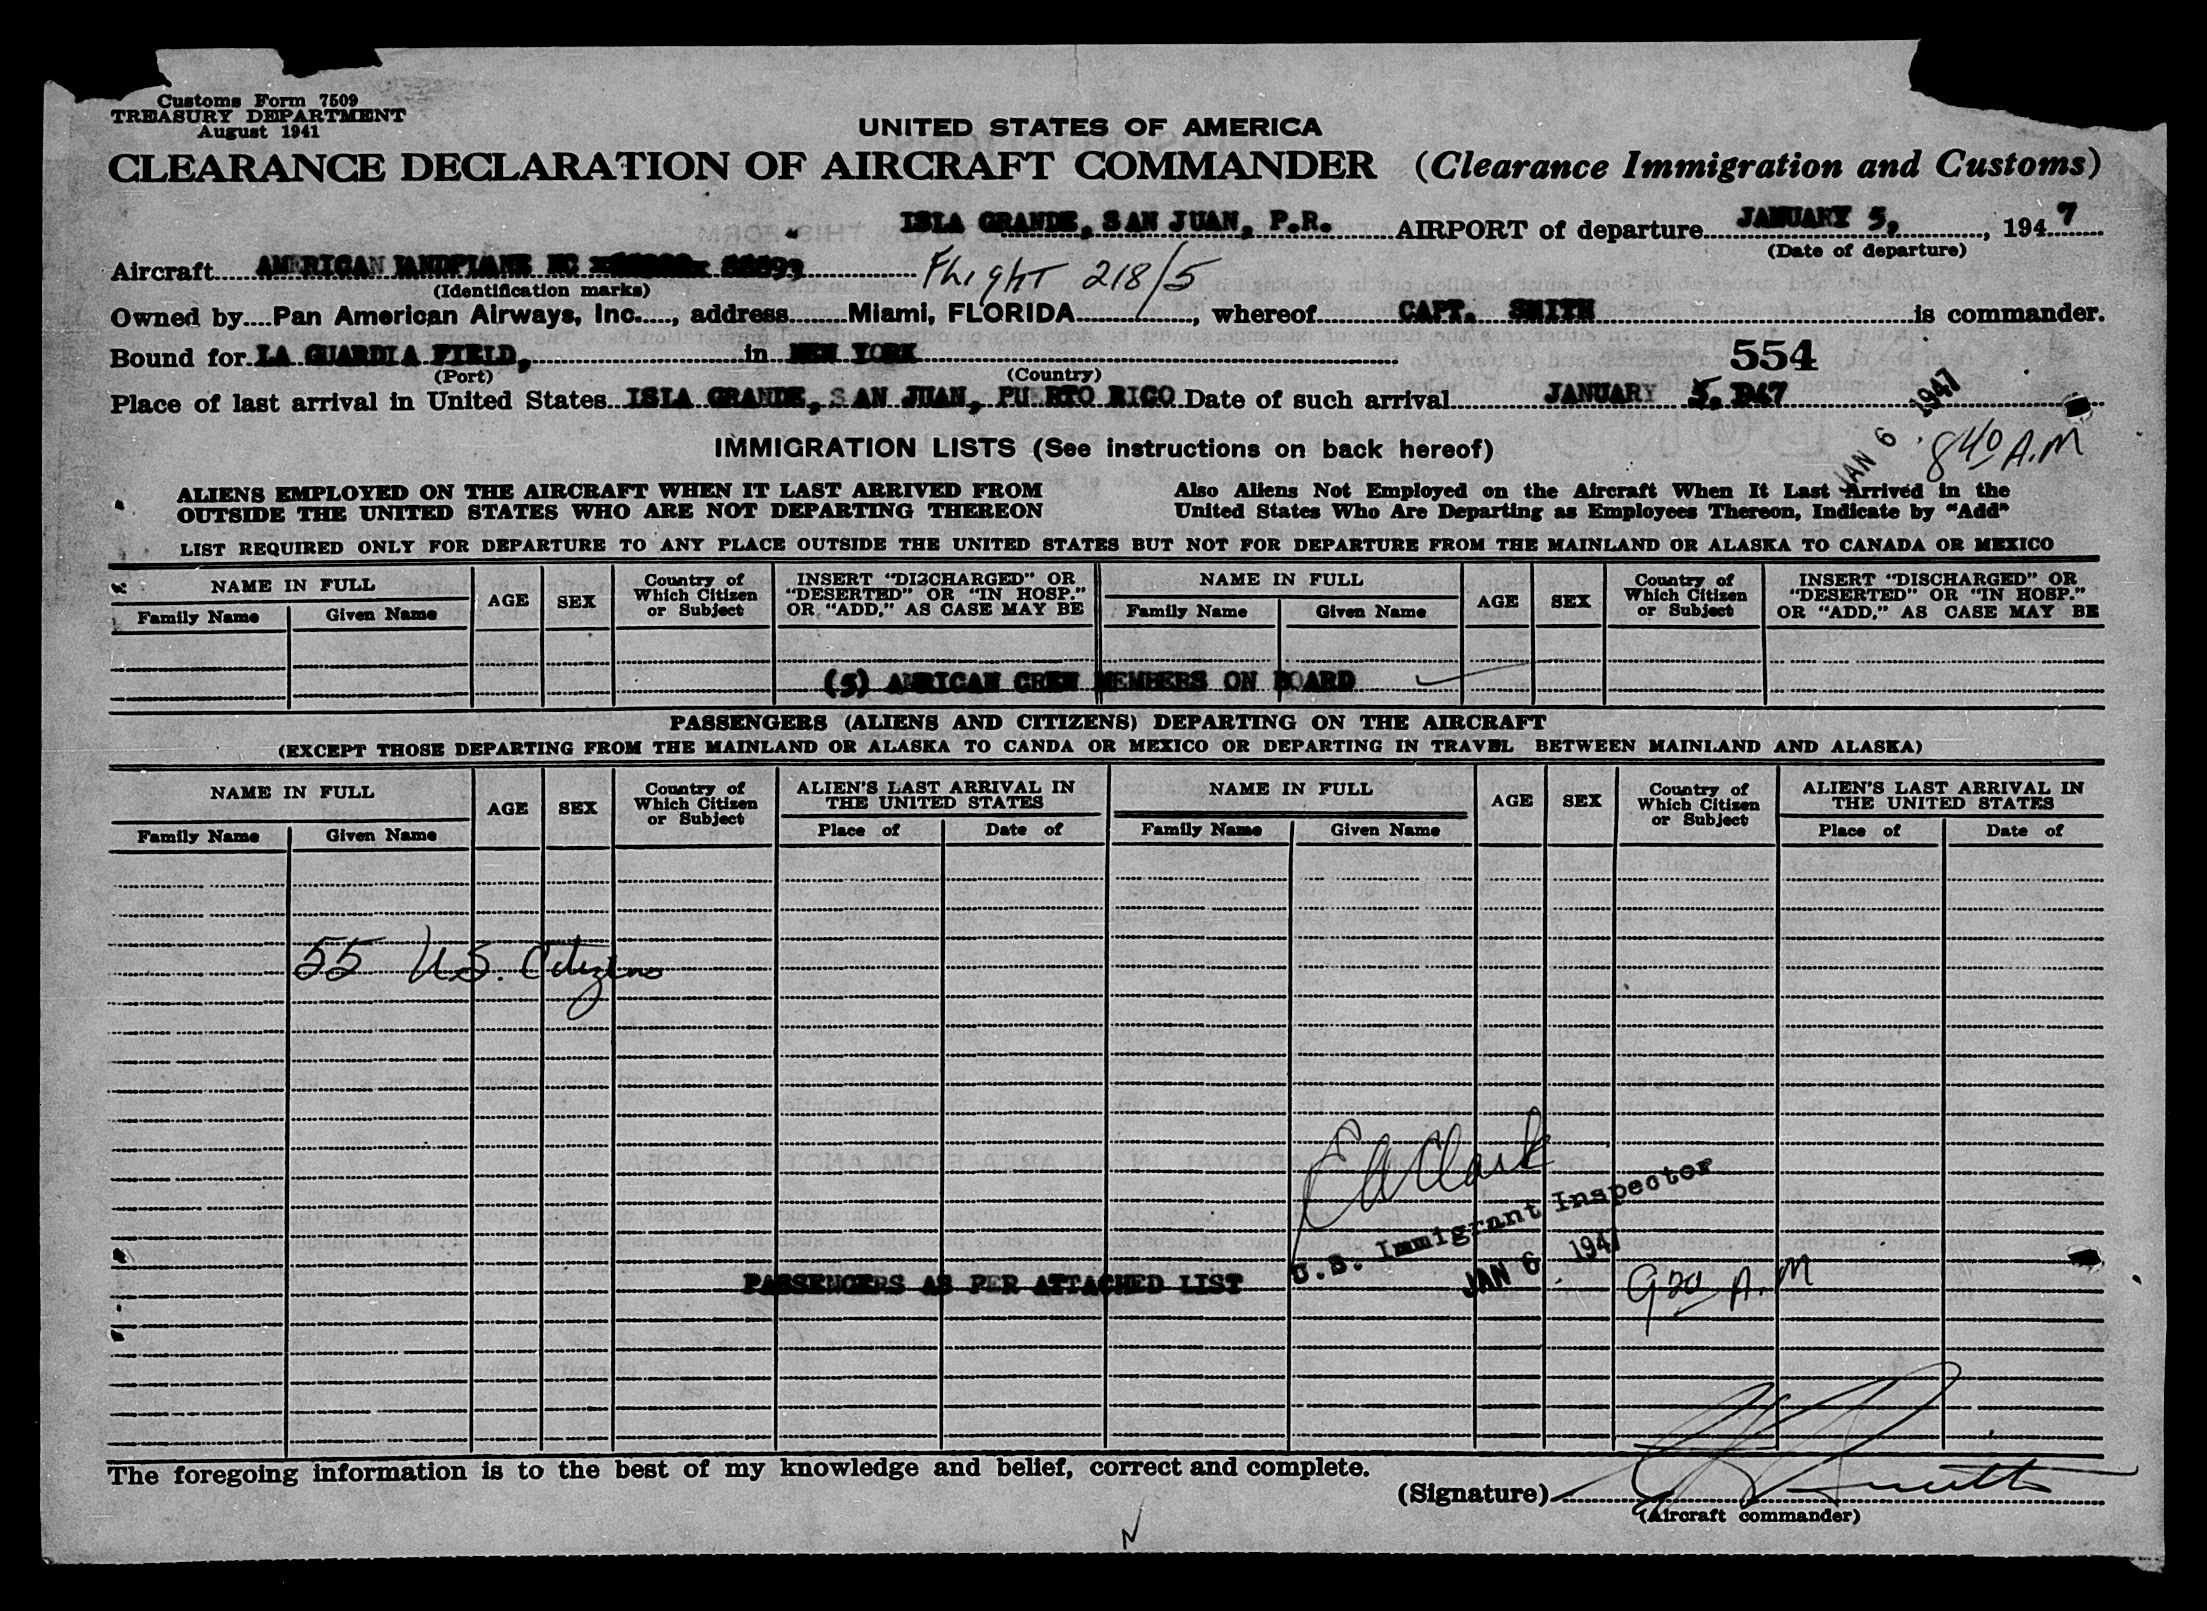 Customs Form 7509
TREASURY DEPARTMENT
August 1941
UNITED STATES OF AMERICA
CLEARANCE DECLARATION OF AIRCRAFT COMMANDER (Clearance Immigration and Customs)
ISLA GRANDE, SAN JUAN, P.R. AIRPORT of departure JANUARY 5, , 1947
(Date of departure)
Aircraft AMERICAN LANDPLANE NC Flight 218/5
(Identification marks)
Owned by Pan American Airways, Inc., address Miami, FLORIDA, whereof CAPT. SMITH is commander.
Bound for LA GUARDIA FIELD, in NEW YORK 554
(Port) (Country)
Place of last arrival in United States ISLA GRANDE, SAN JUAN, PUERTO RICO Date of such arrival JANUARY 5, 1947
JAN 6 1947
8 40 A.M
IMMIGRATION LISTS (See instructions on back hereof)
ALIENS EMPLOYED ON THE AIRCRAFT WHEN IT LAST ARRIVED FROM
OUTSIDE THE UNITED STATES WHO ARE NOT DEPARTING THEREON
Also Aliens Not Employed on the Aircraft When It Last Arrived in the
United States Who Are Departing as Employees Thereon, Indicate by "Add"
LIST REQUIRED ONLY FOR DEPARTURE TO ANY PLACE OUTSIDE THE UNITED STATES BUT NOT FOR DEPARTURE FROM THE MAINLAND OR ALASKA TO CANADA OR MEXICO
NAME IN FULL
Family Name Given Name
AGE
SEX
Country of
Which Citizen
or Subject
INSERT "DISCHARGED" OR
"DESERTED" OR "IN HOSP."
OR "ADD," AS CASE MAY BE
NAME IN FULL
Family Name Given Name
AGE
SEX
Country of
Which Citizen
or Subject
INSERT "DISCHARGED" OR
"DESERTED" OR "IN HOSP."
OR "ADD," AS CASE MAY BE
(5) AMRICAN CREW MEMBERS ON BOARD
PASSENGERS (ALIENS AND CITIZENS) DEPARTING ON THE AIRCRAFT
(EXCEPT THOSE DEPARTING FROM THE MAINLAND OR ALASKA TO CANDA OR MEXICO OR DEPARTING IN TRAVEL BETWEEN MAINLAND AND ALASKA)
NAME IN FULL
Family Name Given Name
AGE
SEX
Country of
Which Citizen
or Subject
ALIEN'S LAST ARRIVAL IN
THE UNITED STATES
Place of Date of
NAME IN FULL
Family Name Given Name
AGE
SEX
Country of
Which Citizen
or Subject
ALIEN'S LAST ARRIVAL IN
THE UNITED STATES
Place of Date of
55 U.S. Citizens
EA Clark
U.S. Immigrant Inspector
JAN 6 1947
9 20 A.M
PASSENGERS AS PER ATTACHED LIST
The foregoing information is to the best of my knowledge and belief, correct and complete.
(Signature)
(Aircraft commander)